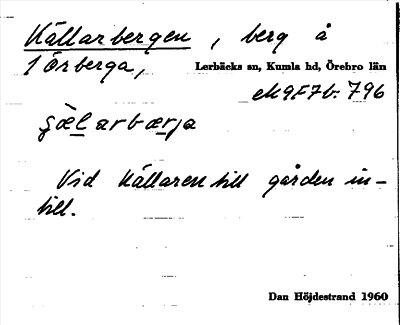 Källarbergen, berg å
1 Örberga,
Lerbäcks sn, Kumla hd, Örebro län
M 9F7b. 796
Vid Källaren till gården in-
till.
Dan Höjdestrand 1960